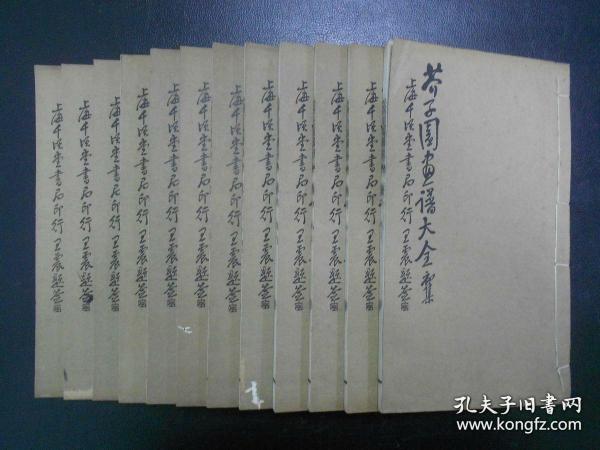 芥子園畫譜大全 集
上海千頃堂書局印行 王震題簽
上海千頃堂書局印行 王震題簽
上海千頃堂書局印行 王震題簽
上海千頃堂書局印行 王震題簽
上海千頃堂書局印行 王震題簽
上海千頃堂書局印行 王震題簽
上海千頃堂書局印行 王震題簽
上海千頃堂書局印行 王震題簽
上海千頃堂書局印行 王震題簽
上海千頃堂書局印行 王震題簽
上海千頃堂書局印行 王震題簽
上海千頃堂書局印行 王震題簽
孔夫子旧书网